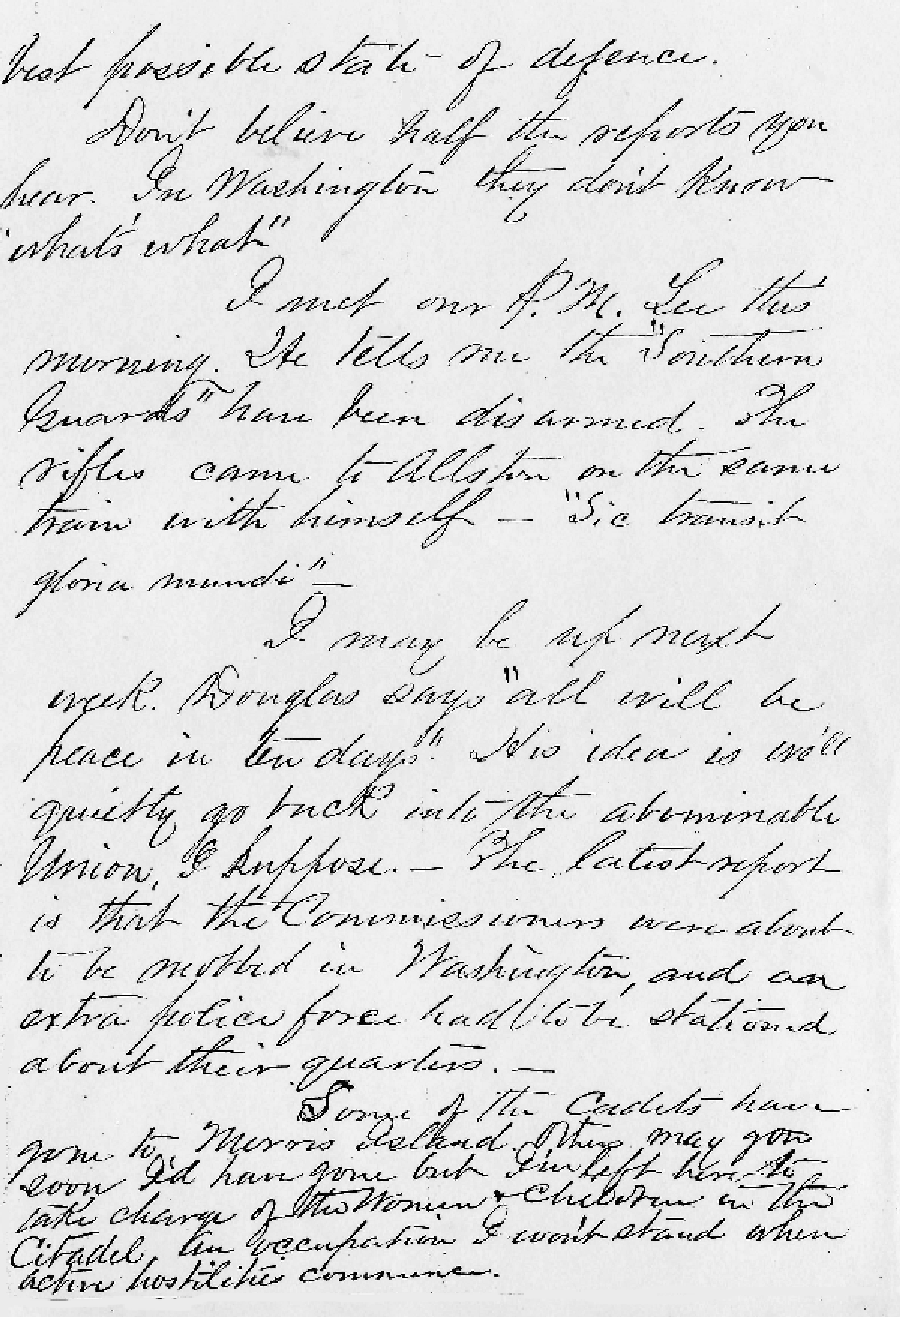 best possible state of defence.
Don't believe half the reports you
hear. In Washington they don't know
"what's what"
I met our P. M. Lee this
morning. He tells me the "Southern
Guards" have been disarmed. The
rifles came to Allston on the same
train with himself — "Sic transit
gloria mundi" —
I may be up next
week. Douglas says "all will be
peace in ten days". His idea is we'll
quietly go back into the abominable
Union, I suppose. — The latest report
is that the Commissioners were about
to be mobbed in Washington, and an
extra police force had to be stationed
about their quarters. —
Some of the Cadets have
gone to Morris Island. Others may go
soon I'd have gone but I'm left here to
take charge of the Women & Children in the
Citadel, an occupation I won't stand when
active hostilities commence.